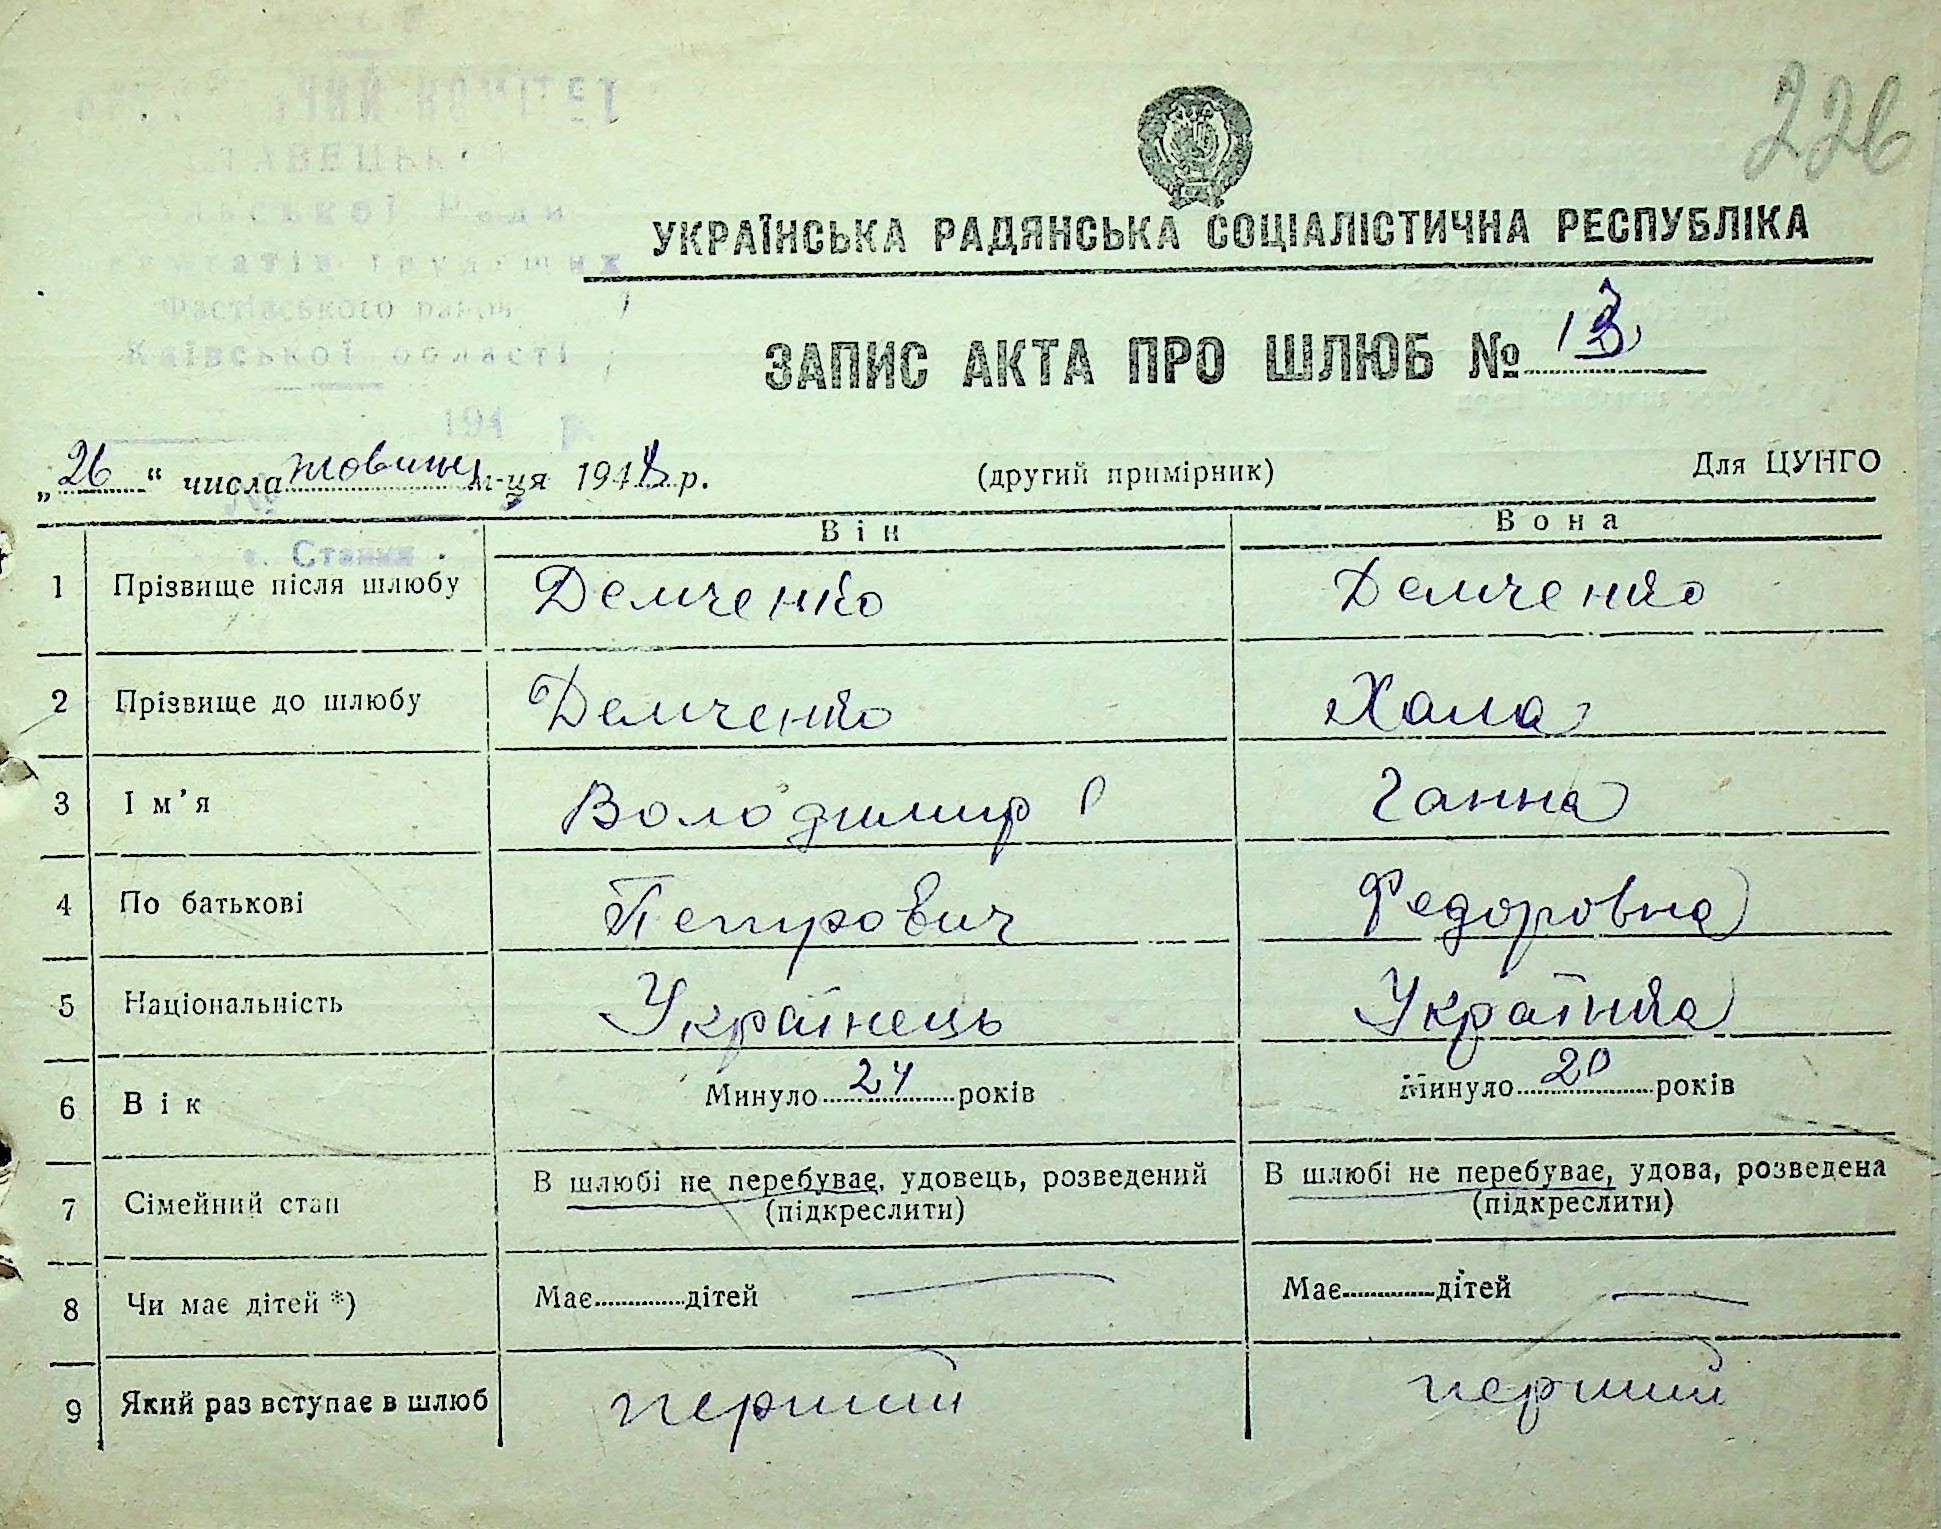 226
КОМІТЕТ
Ради
трудящих
Фастівського району
Київської області
194 р.
УКРАЇНСЬКА РАДЯНСЬКА СОЦІАЛІСТИЧНА РЕСПУБЛІКА
ЗАПИС АКТА ПРО ШЛЮБ № 13
„26“ числа жовтня м-ця 1948 р. (другий примірник) Для ЦУНГО
№
с. Ставки
Він Вона
1 Прізвище після шлюбу Демченко Демченко
2 Прізвище до шлюбу Демченко Хала
3 Ім’я Володимир Ганна
4 По батькові Петрович Федоровна
5 Національність Українець Українка
6 Вік Минуло 24 років Минуло 20 років
7 Сімейний стан В шлюбі не перебуває, удовець, розведений (підкреслити) В шлюбі не перебуває, удова, розведена (підкреслити)
8 Чи має дітей *) Має дітей — Має дітей —
9 Який раз вступає в шлюб перший перший